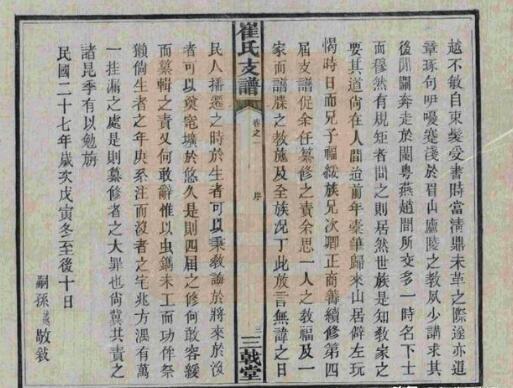 越不敏自束髮受書時當清鼎未革之際遂亦迴
章琢句咿嚘蹇淺於眉山廬陵之教夙少講求其
後閒關奔走於閩粵燕趙間所交多一時名下士
而穆然有規矩者間之則居然世族是知教家之
要其道尚在人間迨前年臺華歸來山居僻左玩
愒時日而兄子福綏族兄次卿正商善續修第四
屆支譜促余任纂修之責余思一人之教福及一
家而譜牒之教施及全族况丁此放言無諱之日
崔氏支譜
卷之一
序
三
三戟堂
民人播遷之時於生者可以秉教諭於將來於沒
者可以奠窀壙於悠久是則四屆之修何敢容緩
而纂輯之責又何敢辭惟以虫鐫未工而功侔祭
獺倘生者之年庚系注而沒者之宅兆方渥有萬
一挂漏之處是則纂修者之大罪也尚冀其責之
諸昆季有以勉旃
民國二十七年歲次戊寅冬至後十日
嗣孫 敬敘